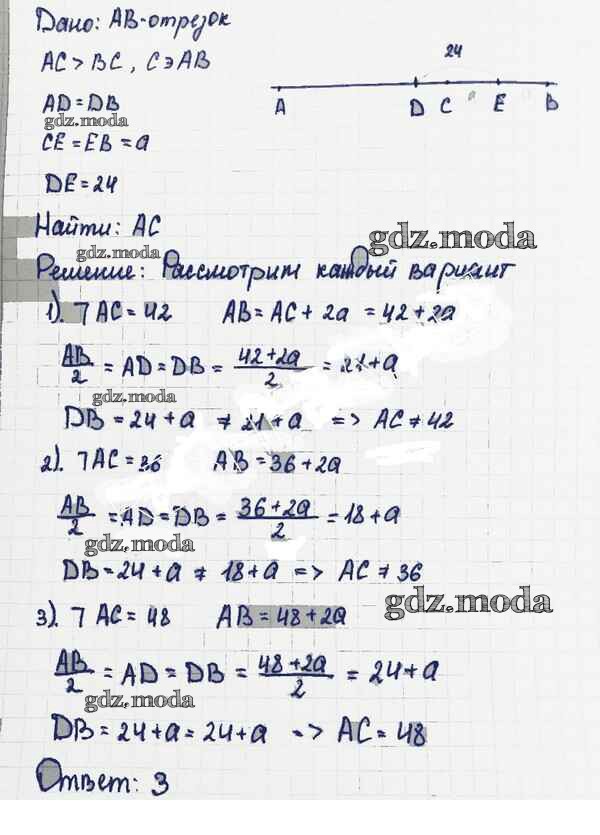 Дано: AB-отрезок
AC > BC , C ∋ AB
24
A D C a E B
AD = DB
gdz.moda
CE = EB = a
DE = 24
Найти: AC
gdz.moda
gdz.moda
Решение: Рассмотрим каждый вариант
1). ⅂ AC = 42 AB = AC + 2a = 42 + 2a
AB/2 = AD = DB = (42+2a)/2 = 21 + a
gdz.moda
DB = 24 + a ≠ 21 + a => AC ≠ 42
2). ⅂ AC = 36 AB = 36 + 2a
AB/2 = AD = DB = (36+2a)/2 = 18 + a
gdz.moda
DB = 24 + a ≠ 18 + a => AC ≠ 36
gdz.moda
3). ⅂ AC = 48 AB = 48 + 2a
AB/2 = AD = DB = (48+2a)/2 = 24 + a
gdz.moda
DB = 24 + a = 24 + a => AC = 48
Ответ: 3